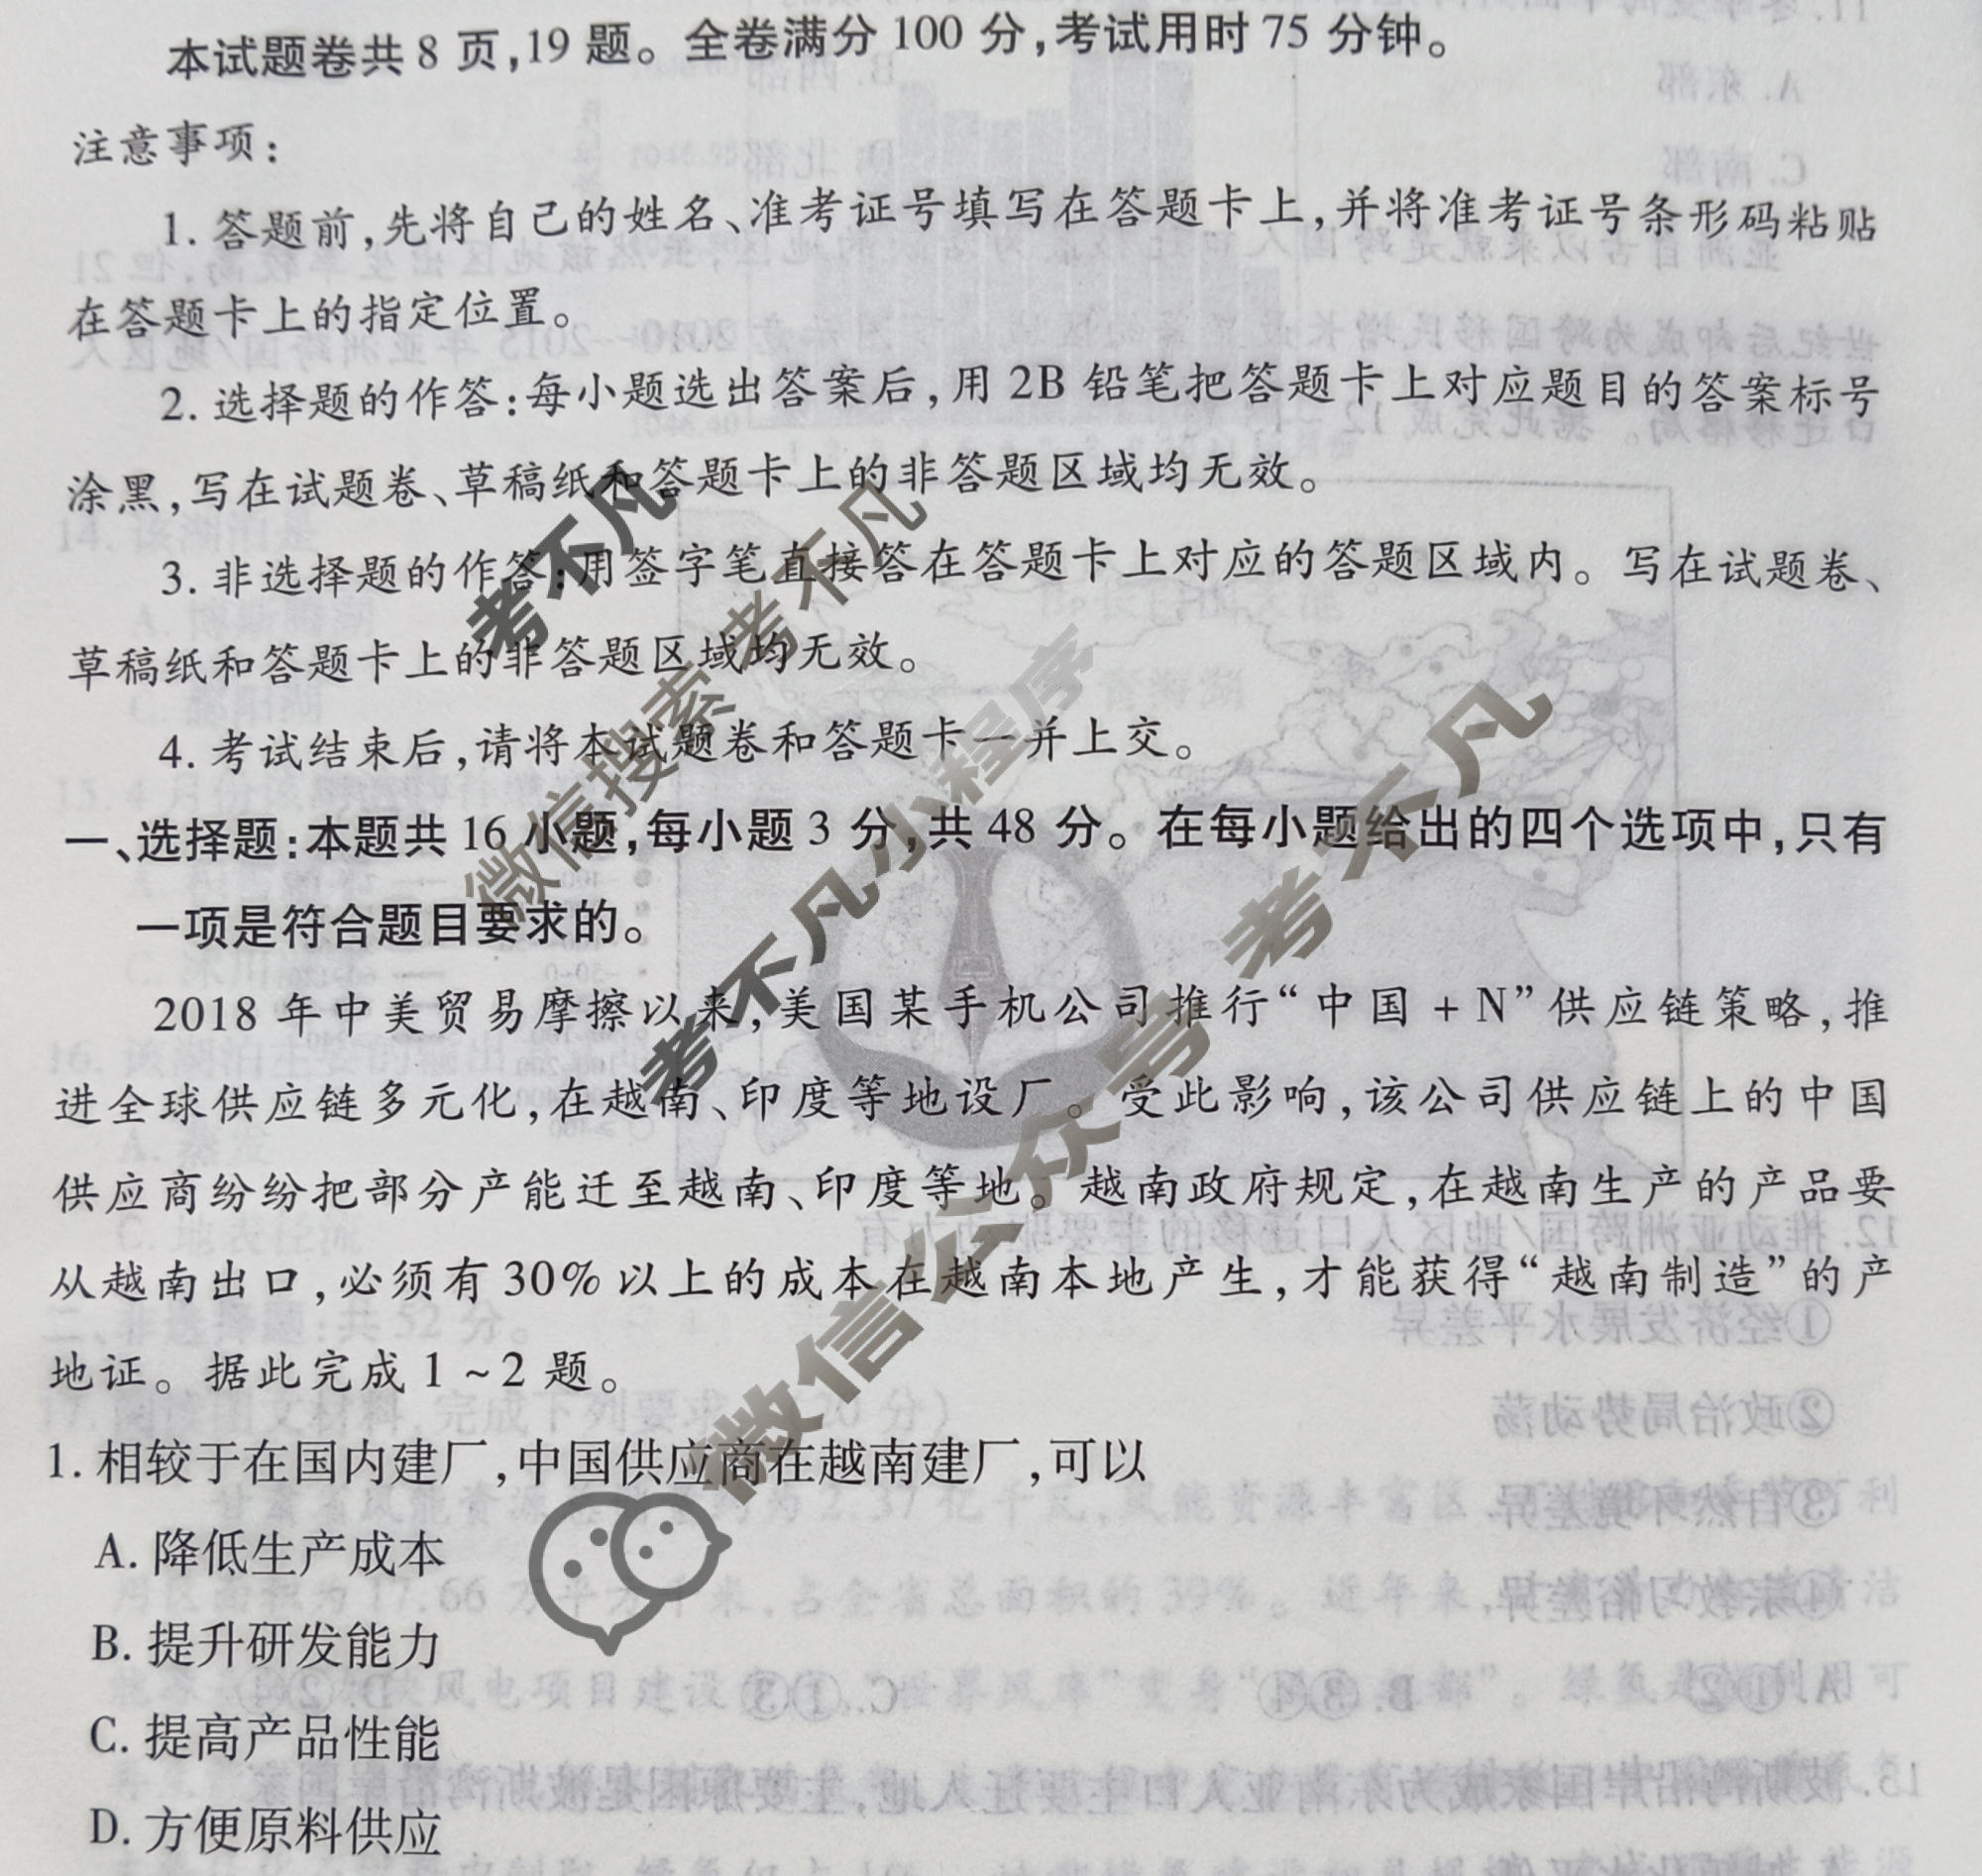 本试题卷共8页,19题。全卷满分100分,考试用时75分钟。
注意事项:
1. 答题前,先将自己的姓名、准考证号填写在答题卡上,并将准考证号条形码粘贴
在答题卡上的指定位置。
2. 选择题的作答:每小题选出答案后,用2B铅笔把答题卡上对应题目的答案标号
涂黑,写在试题卷、草稿纸和答题卡上的非答题区域均无效。
3. 非选择题的作答:用签字笔直接答在答题卡上对应的答题区域内。写在试题卷、
草稿纸和答题卡上的非答题区域均无效。
4. 考试结束后,请将本试题卷和答题卡一并上交。
一、选择题:本题共16小题,每小题3分,共48分。在每小题给出的四个选项中,只有
一项是符合题目要求的。
2018年中美贸易摩擦以来,美国某手机公司推行“中国+N”供应链策略,推
进全球供应链多元化,在越南、印度等地设厂。受此影响,该公司供应链上的中国
供应商纷纷把部分产能迁至越南、印度等地。越南政府规定,在越南生产的产品要
从越南出口,必须有30%以上的成本在越南本地产生,才能获得“越南制造”的产
地证。据此完成1~2题。
1. 相较于在国内建厂,中国供应商在越南建厂,可以
A. 降低生产成本
B. 提升研发能力
C. 提高产品性能
D. 方便原料供应
考不凡
微信搜索 考不凡
考不凡小程序
微信公众号 考不凡